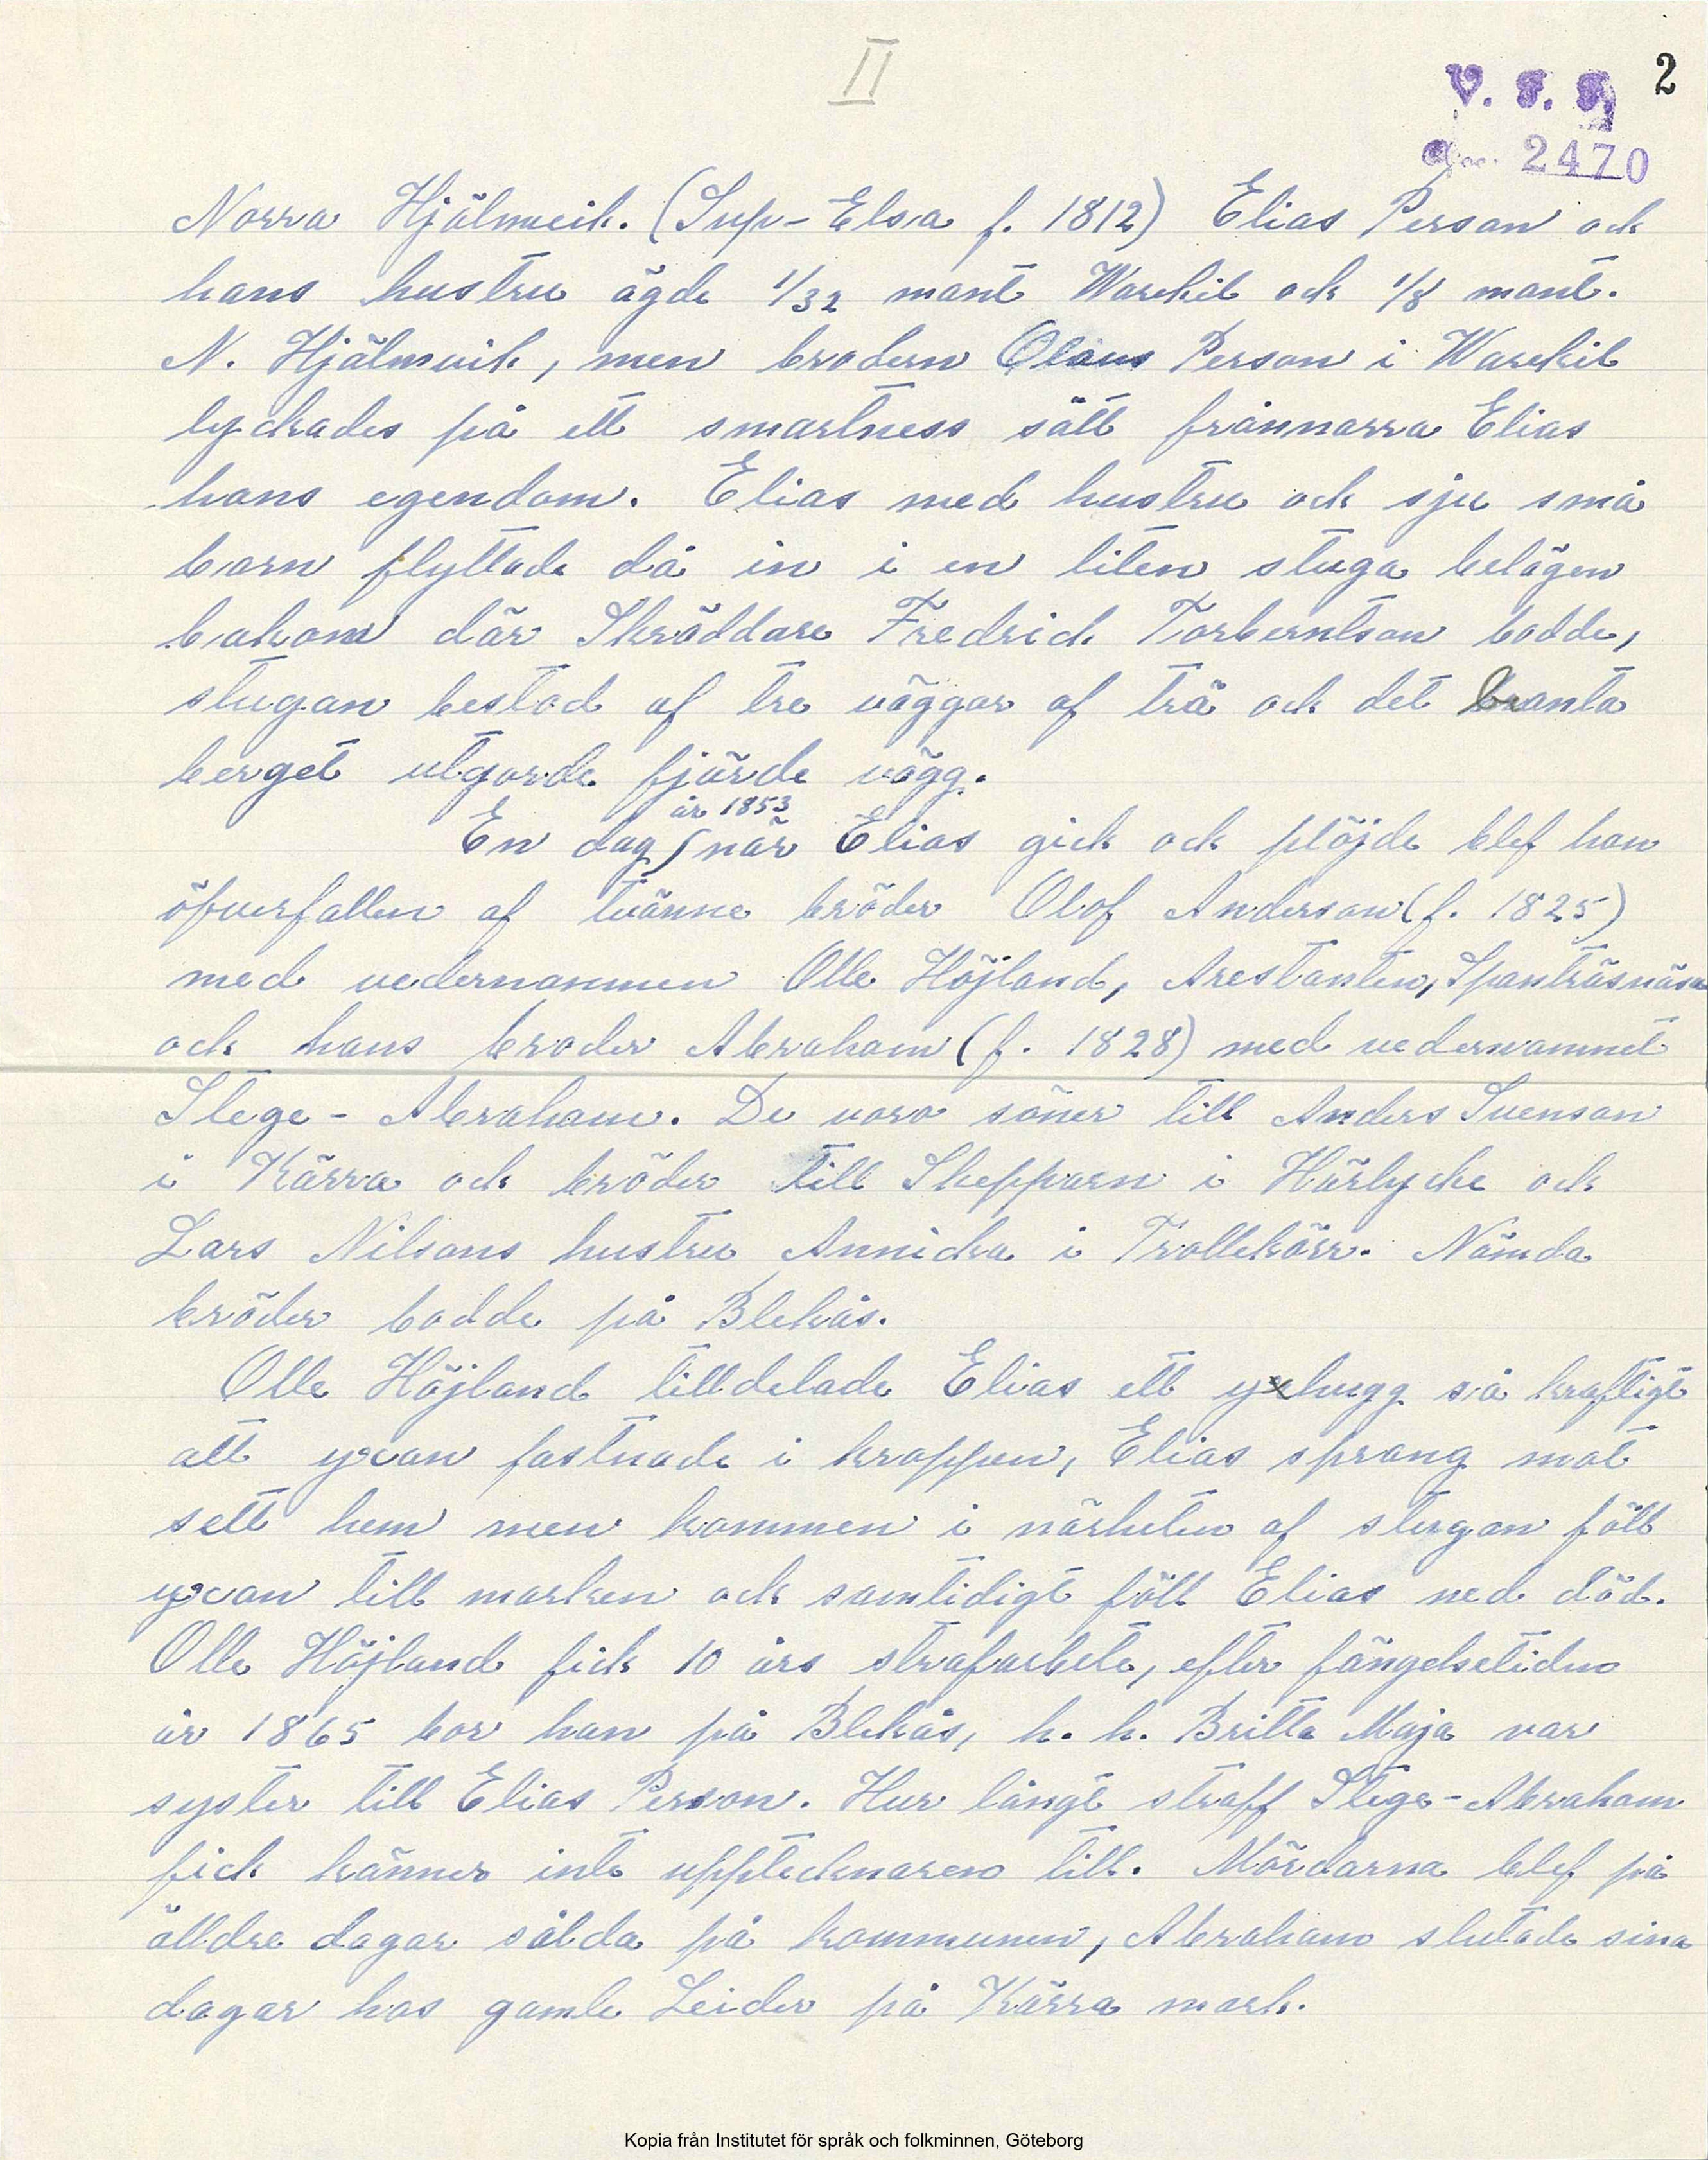 II
2
V. F. F.
2470
Norra Hjälmvik. (Sup-Elsa f. 1812) Elias Person och
hans hustru ägde 1/32 mant Warekil och 1/8 mant.
N. Hjälmvik, men brodern Olaus Person i Warekil
lyckades på ett smartness sätt frånnarra Elias
hans egendom. Elias med hustru och sju små
barn flyttade då in i en liten stuga belägen
bakom där Skräddare Fredrick Torberntson bodde,
stugan bestod af tre väggar af trä och det branta
berget utgjorde fjärde vägg.
år 1853
En dag när Elias gick och plöjde blef han
öfverfallen af tvänne bröder Olof Anderson (f. 1825)
med vedernamnen Olle Höjland, Arestanten, Spanträsnäsa
och hans broder Abraham (f. 1828) med vedernamnet
Stege-Abraham. De voro söner till Anders Svenson
i Kärra och bröder till Skepparn i Härlycke och
Lars Nilsons hustru Annicka i Trollekärr. Nämda
bröder bodde på Blekås.
Olle Höjland tilldelade Elias ett yxhugg så kraftigt
att yxan fastnade i kroppen, Elias sprang mot
sett hem men kommen i närheten af stugan föll
yxan till marken och samtidigt föll Elias ned död.
Olle Höjland fick 10 års strafarbete, efter fängelsetiden
år 1865 bor han på Blekås, h. h. Britta Maja var
syster till Elias Person. Hur långt straff Stege-Abraham
fick känner inte upptecknaren till. Mördarna blef på
älldre dagar sålda på kommunen, Abraham slutade sina
dagar hos gamle Leider på Kärra mark.
Kopia från Institutet för språk och folkminnen, Göteborg